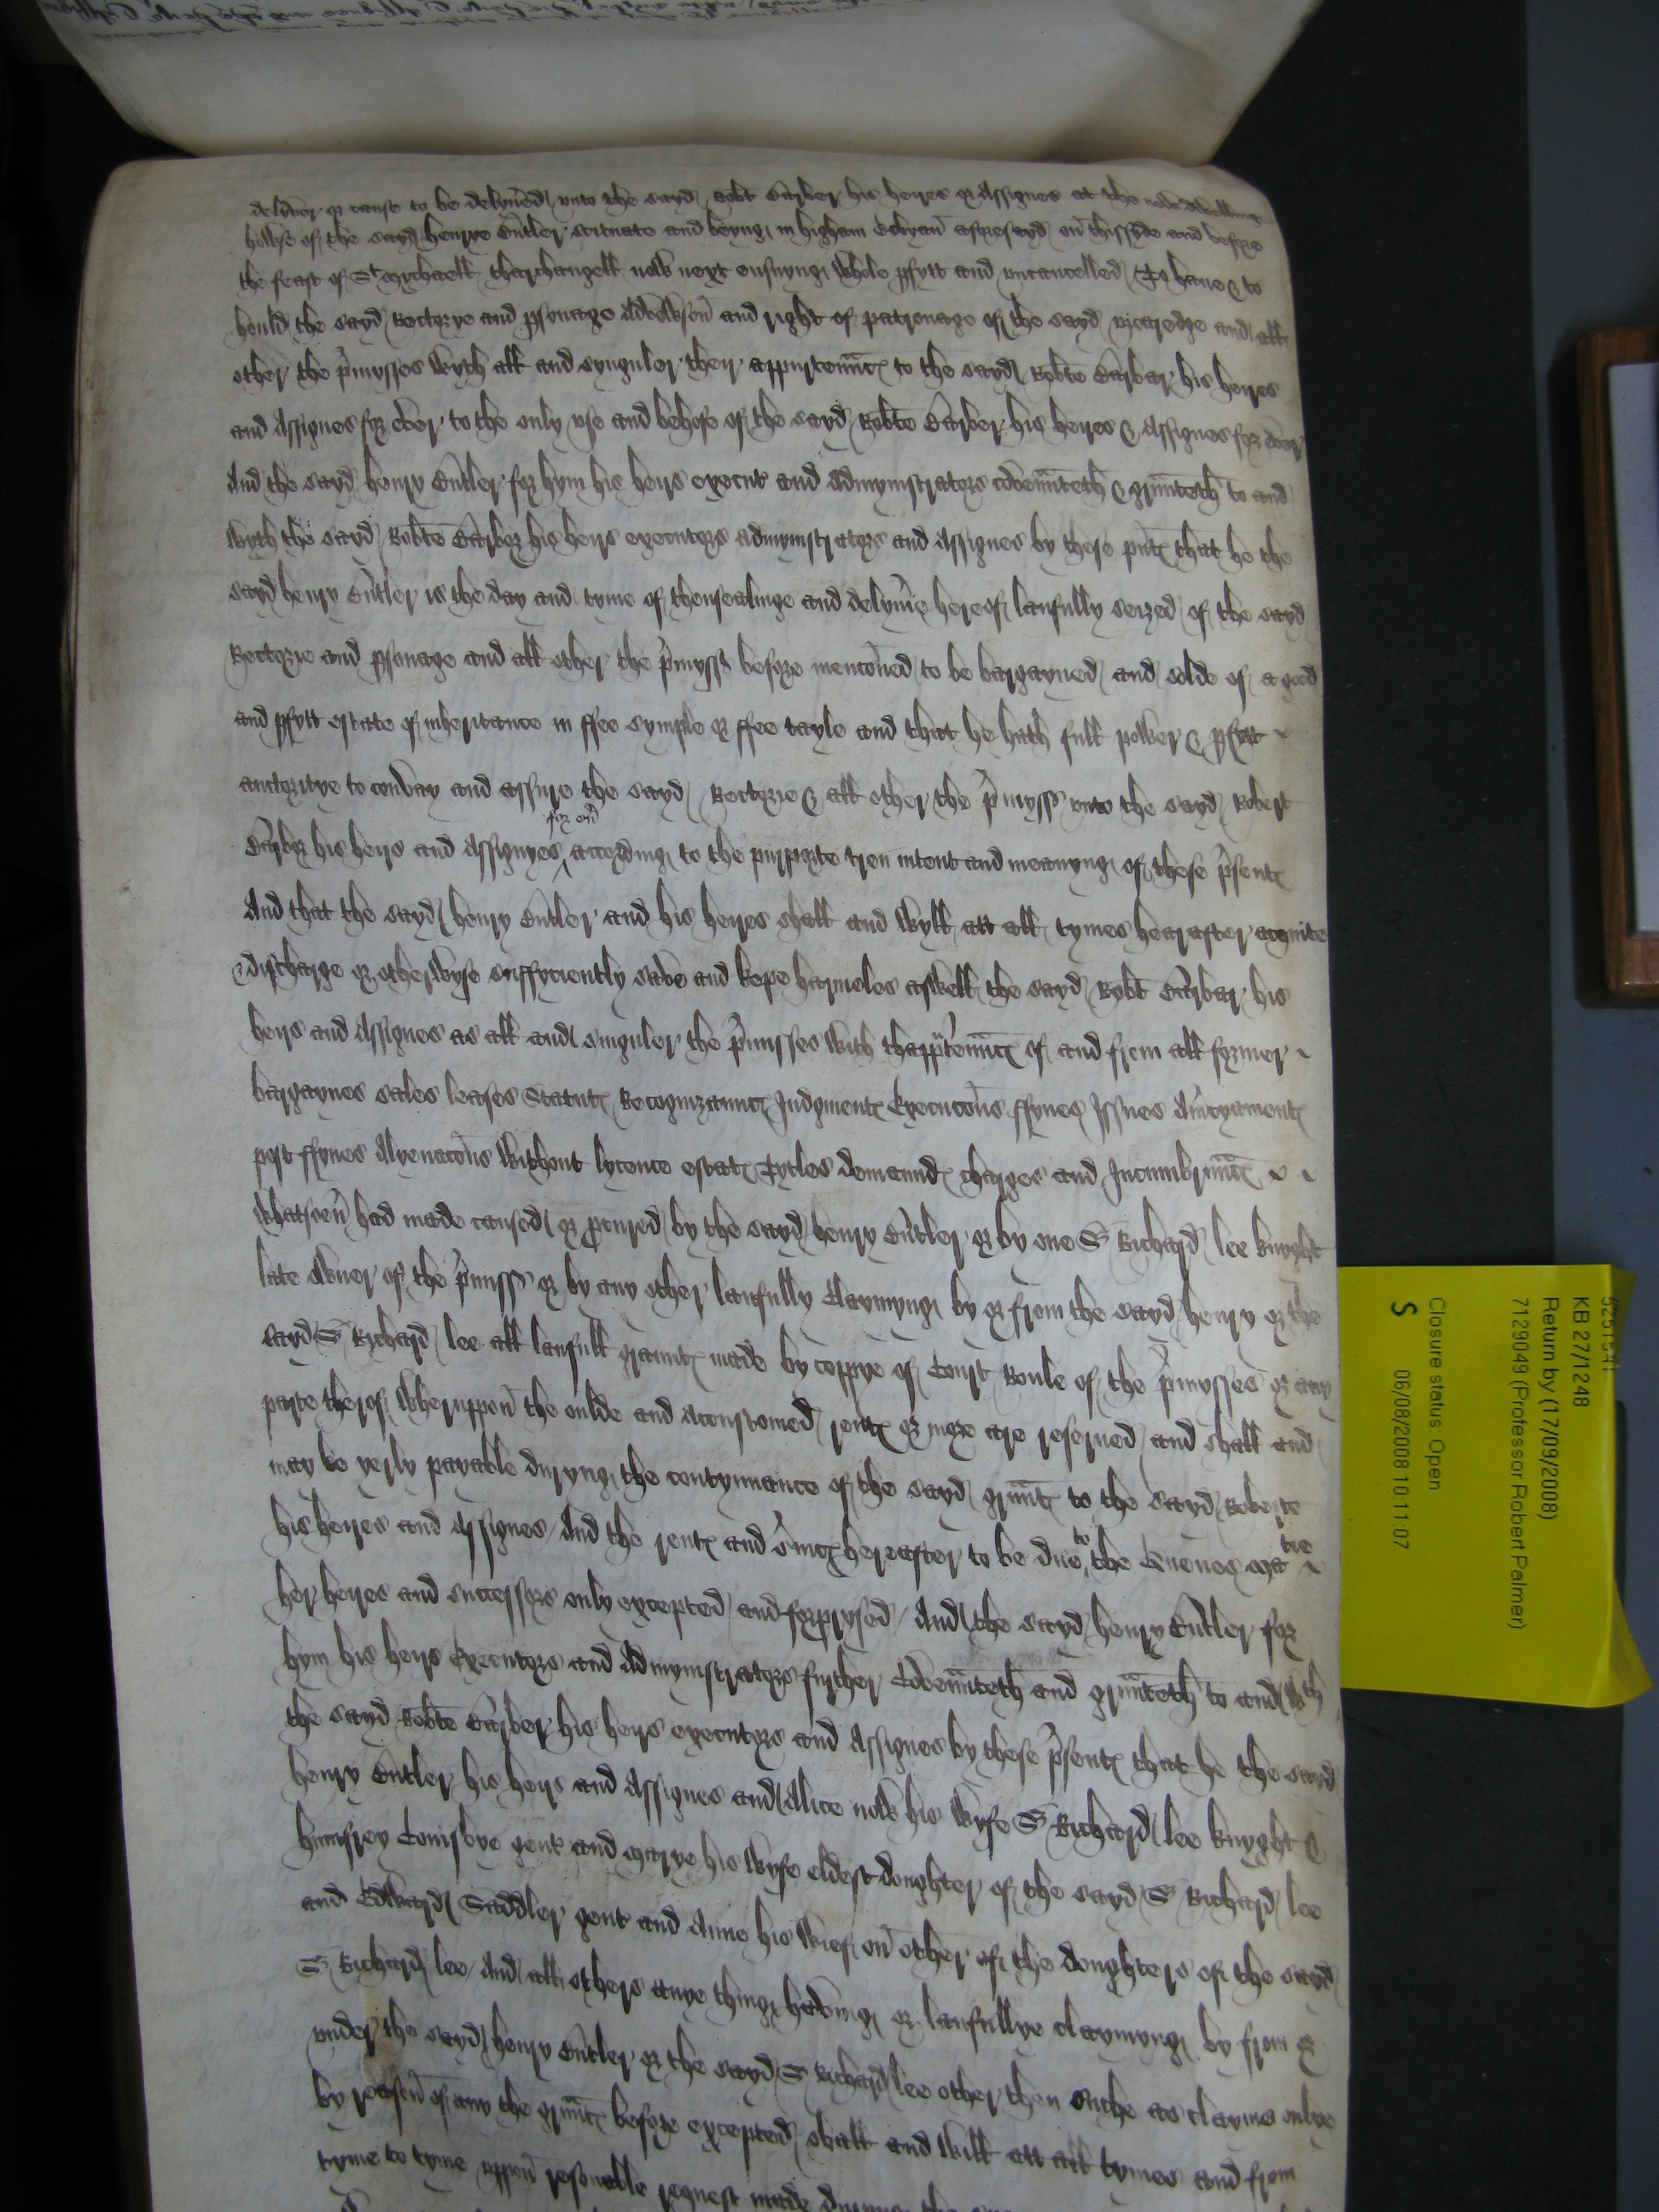 delyver or cause to be delyũed unto the sayd Robt Carber his heyres or Assignes at the nowe dwellinge
howse of the sayd henrye Cutler scituate and beyng in higham aforesayd on thissyde and before
the feast of St mychaell tharchangell now next ensuyng whole pfytt and uncancelled To haue & to
hould the sayd Rectorye and psonage Advowson and right of patronage of the sayd vycaredge and all
other the p̃mysses wyth all and synguler their appurtenñc to the sayd Robte Carbar his heyres
and Assignes for ever to the only use and behofe of the sayd Robte Carber his heyres & Assignes for ever
And the sayd henry Cutler for hym his heirs execut and Admynistrators coveñnteth & grñnteth to and
wyth the sayd Robte Carber his heirs executors admynistrators and Assignes by these pñts that he the
sayd henry Cutler is the day and tyme of thensealinge and delyũie hereof laufully seized of the sayd
Rectorie and psonage and all other the p̃myss before mencõned to be bargayned and solde of a good
and pfytt estate of inheritance in ffee symple or ffee tayle and that he hath full power & pfytt
auctoritye to convay and assure the sayd Rectorie & all other the p̃myss unto the sayd Robert
Carber his heirs and Assignyes for eũ according to the purporte trew intent and meanyng of these p̃sents
And that the sayd henry Cutler and his heyres shall and wyll att all tymes hearafter acquite
& discharge or otherwyse suffyciently save and kepe harmeles aswell the sayd Robt Carbar his
heirs and Assignes as all and singuler the p̃misses with thapptenñcs of and from all former
bargaynes sales leases Statuts Recognizauncs Judgments Execucõns ffynes Issues Am̃cyaments
post ffynes Alyenacõns without lycence estats Tytles demaunds charges and Incumbrñncs
whatsoeũ had made caused or pcured by the sayd henry Cutler or by one Sr Richard lee knyght
late owner of the p̃miss or by any other laufully Claymyng by or from the sayd henry or the
sayd Sr Richard lee all laufull graunts made by coppye of Court Roule of the p̃mysses or any
parte therof wheruppon the oulde and acoustomed rents or more are reserued and shall and
may be yerly payable duryng the contynuance of the sayd grñnts to the sayd Roberte
his heyres and Assignes And the rents and s̃uics hereafter to be due to the Quenes Matie
her heyres and successors only excepted and forprysed And the sayd henry Cutler for
hym his heirs Executors and Admynistrators further Coveñnteth and grñnteth to and wth
the sayd Robte Carber his heirs executors and Assignes by these p̃sents that he the sayd
henry Cutler his heirs and Assignes and Alice now his wyfe Sr Richard lee knyght &
humfrey Conisbye gent and marye his wyfe eldest doughter of the sayd Sr Richard lee
and Edward Saddler gent and Anne his wief on other of the doughters of the sayd
Sr Richard lee And all others anye thing having or laufullye claymyng by from or
under the sayd henry Cutler or the sayd Sr Richard lee other then suche as clayme onlye
by reason of any the grñnts before excepted shall and will att all tymes and from
tyme to tyme uppon resonable request made
525154!
KB 27/1248
Return by (17/09/2008)
7129049 (Professor Robert Palmer)
Closure status: Open
S 06/08/2008 10:11:07